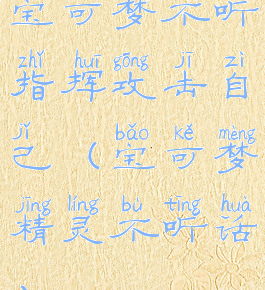 宝可梦不听
zhǐ huī gōng jī zì
指挥攻击自
jǐ bǎo kě mèng
己(宝可梦
jīng líng bù tīng huà
精灵不听话
)